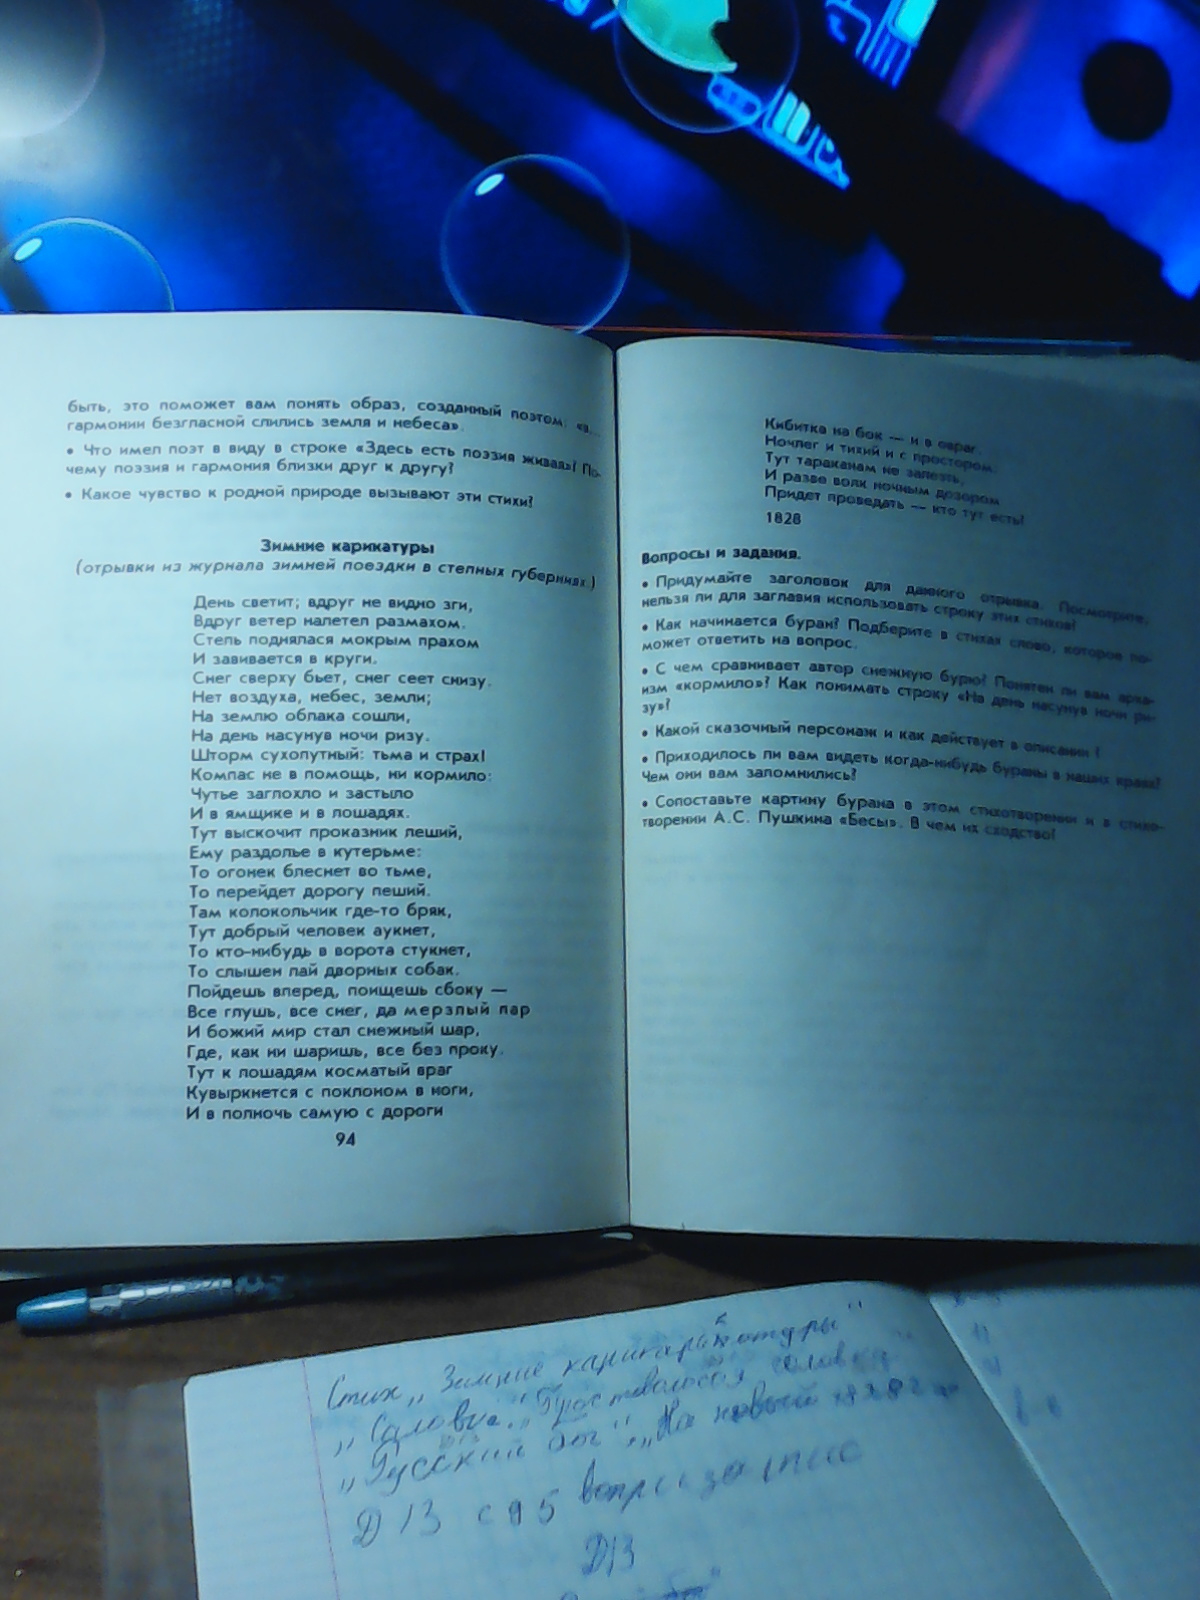 быть, это поможет вам понять образ, созданный поэтом: «в...
гармонии безгласной слились земля и небеса».
• Что имел поэт в виду в строке «Здесь есть поэзия живая»? По-
чему поэзия и гармония близки друг к другу?
• Какое чувство к родной природе вызывают эти стихи?
Зимние карикатуры
(отрывки из журнала зимней поездки в степных губерниях.)
День светит; вдруг не видно зги,
Вдруг ветер налетел размахом.
Степь поднялася мокрым прахом
И завивается в круги.
Снег сверху бьет, снег сеет снизу.
Нет воздуха, небес, земли;
На землю облака сошли,
На день насунув ночи ризу.
Шторм сухопутный: тьма и страх!
Компас не в помощь, ни кормило:
Чутье заглохло и застыло
И в ямщике и в лошадях.
Тут выскочит проказник леший,
Ему раздолье в кутерьме:
То огонек блеснет во тьме,
То перейдет дорогу пеший.
Там колокольчик где-то бряк,
Тут добрый человек аукнет,
То кто-нибудь в ворота стукнет,
То слышен лай дворных собак.
Пойдешь вперед, поищешь сбоку —
Все глушь, все снег, да мерзлый пар
И божий мир стал снежный шар,
Где, как ни шаришь, все без проку.
Тут к лошадям косматый враг
Кувыркнется с поклоном в ноги,
И в полночь самую с дороги
94
Кибитка на бок — и в овраг.
Ночлег и тихий и с простором:
Тут тараканам не залезть,
И разве волк ночным дозором
Придет проведать — кто тут есть?
1828
Вопросы и задания.
• Придумайте заголовок для данного отрывка. Посмотрите,
нельзя ли для заглавия использовать строку этих стихов?
• Как начинается буран? Подберите в стихах слово, которое по-
может ответить на вопрос.
• С чем сравнивает автор снежную бурю? Понятен ли вам арха-
изм «кормило»? Как понимать строку «На день насунув ночи ри-
зу»?
• Какой сказочный персонаж и как действует в описании?
• Приходилось ли вам видеть когда-нибудь бураны в наших краях?
Чем они вам запомнились?
• Сопоставьте картину бурана в этом стихотворении и в стихо-
творении А.С. Пушкина «Бесы». В чем их сходство?
Стих „Зимние
„Русский бог" „На новый 1828 г
Д13 с 95
Д13